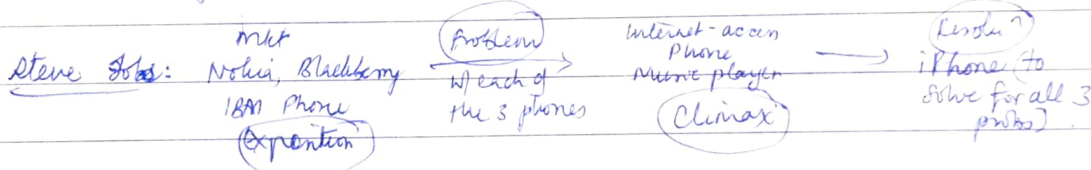 Steve Jobs:
mkt
Nokia, Blackberry
IBM Phone
Exposition
Problem
w/ each of
the 3 phones
Internet-access
Phone
Music player
Climax
Resolu?
iPhone (to
solve for all 3
probs)